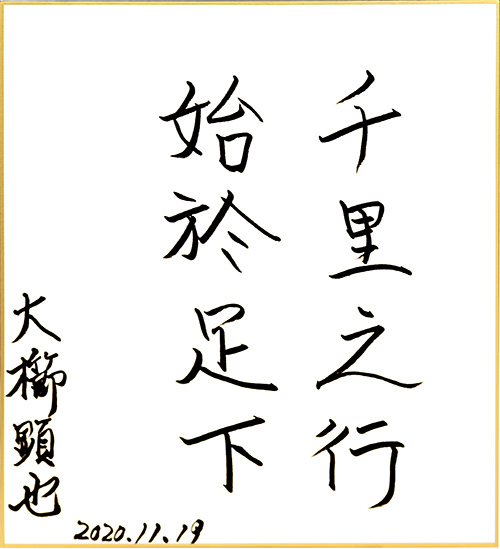 千里之行
始於足下
大櫛顕也
2020.11.19